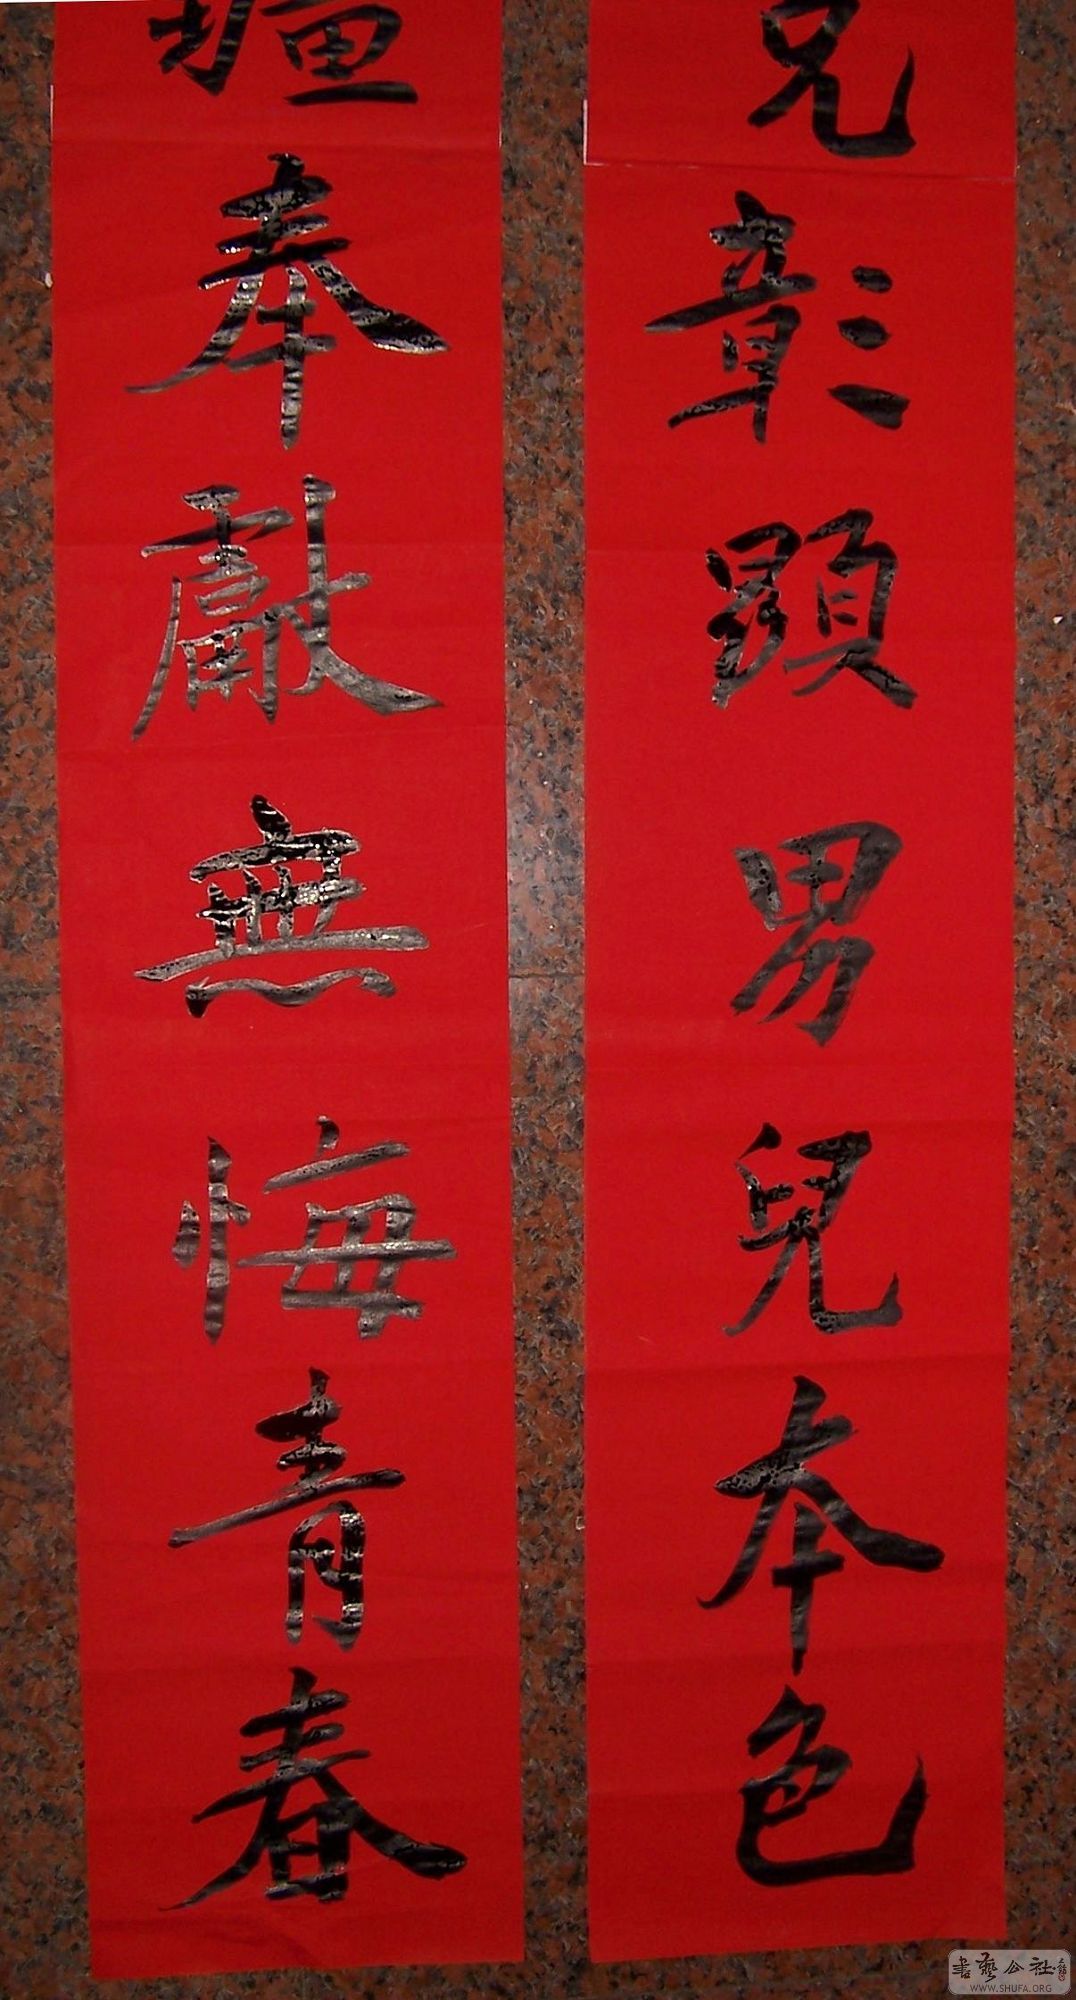 彰顯男兒本色
奉獻無悔青春
書藝公社
WWW.SHUFA.ORG